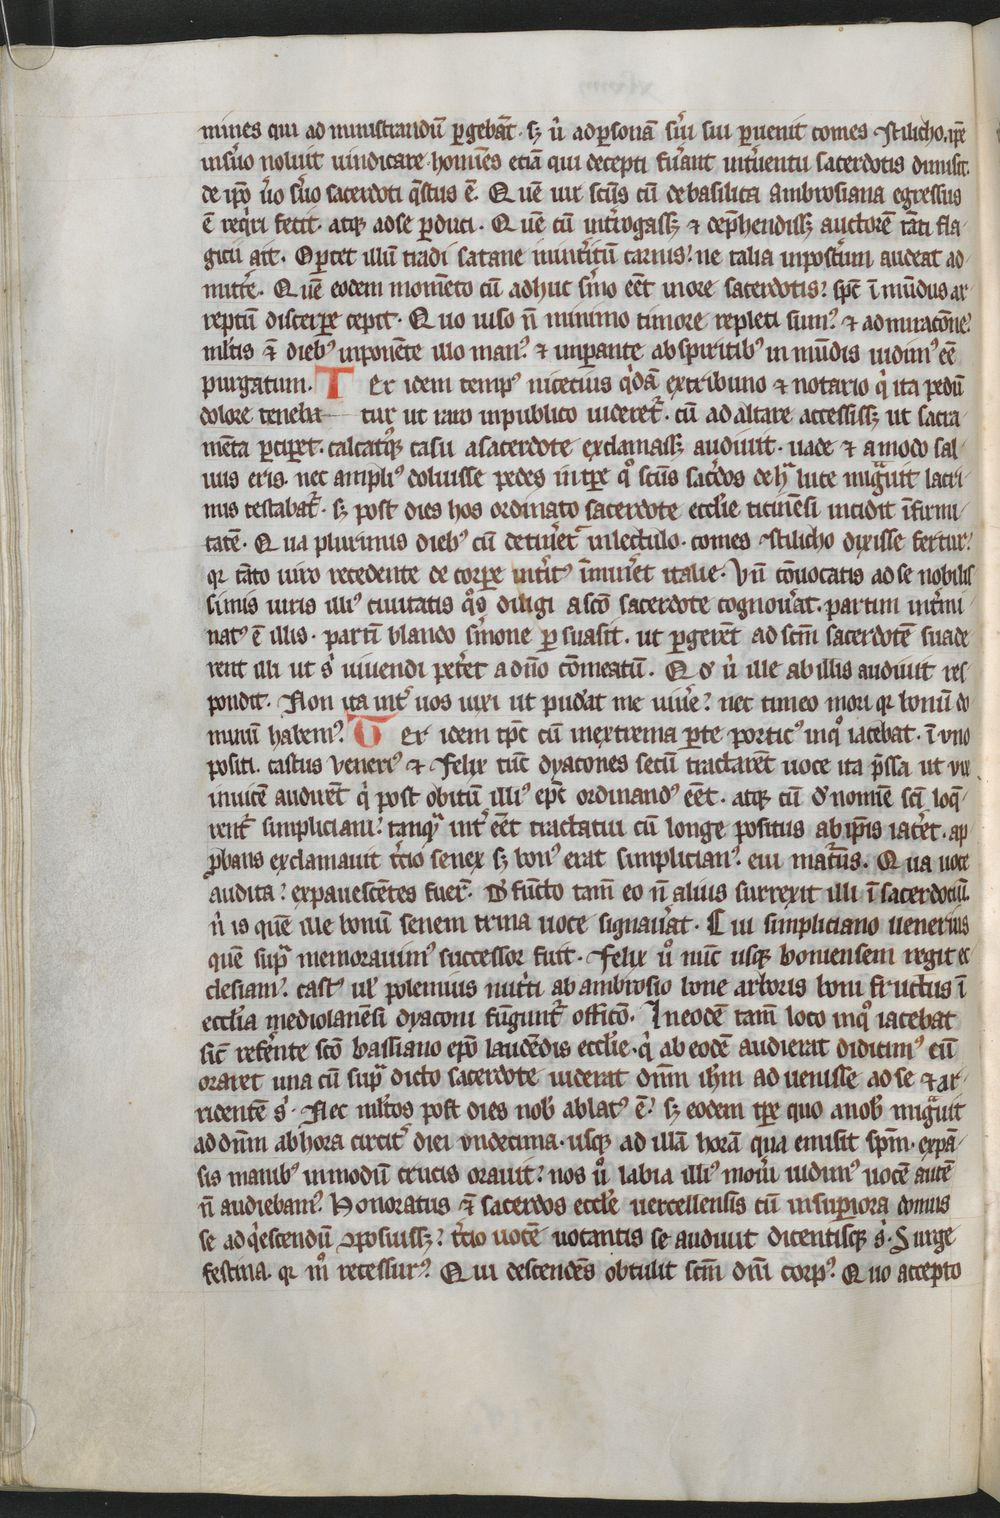 mines qui ad ministrandū ꝑgebāt· sꝫ ů ad ꝑsonā s̉ui sui ꝑuenit comes stilicho. ip̄e
in s̉uo noluit uindicare· homīes etiā qui decepti fu̓ant int̓uentu sacerdotis dimisit.
de ip̄o u̓o s̓uo sacerdoti q̄stus ē. Quē uir scūs cū de basilica ambrosiana egressus
ē req̓ri fecit· atqꝫ ad se ꝑduci. Quē cū int̓rogassꝫ ⁊ dep̄hendissꝫ auctorē tāti fla-
gicii ait. Oportet illū tradi satane in int̓itū carnis: ne talia in post̓um audeat ad-
mitt̓e. Quē eodem momēto cū adhuc s̓mo eēt in ore sacerdotis: spc̄ īmūdus ar
reptū discerꝑe cepit. Quo uiso n̄ minimo timore repleti sumꝰ ⁊ admiratōne.
ml̓tis ē dieb̓ꝰ inponēte illo manꝰ ⁊ imꝑante ab spiritibꝰ inmūdis uidimꝰ eē
purgatum. Ter idem tempꝰ nicetius q̓dā ex tribuno ⁊ notario q̓ ita pedū
dolore teneba- tur ut raro in publico uideret̓. cū ad altare accessissꝫ ut sacra-
mēta ꝑciꝑet. calcatꝰqꝫ casu a sacerdote exclamassꝫ audiuit. uade ⁊ amodo sal-
uus eris. nec ampliꝰ doluisse pedes in tꝑe qͦ scūs sac̓dos de hᵃ luce migᵃuit lacri-
mis testabat̓. sꝫ post dies hos ordinato sacerdote ecclie ticinēsi incidit īfirmi-
tatē. Qua plurimis diebꝰ cū detin̓et̓ in lectulo. comes stilicho dixisse fertur:
qr tāto uiro recedente de corꝑe int̓itꝰ īmin̓et italie. Vn̄ cōuocatis ad se nobilis
simis uiris illiꝰ ciuitatis q̓s diligi a scō sacerdote cognou̓at. partim int̓mi-
natꝰ ē illis. partī blando s̓mone ꝑsuasit. ut ꝑgerēt ad scm̄ sacerdotē suade
rent illi ut s̓ uiuendi pet̓et a dn̄o cōmeatū. Qd̓ ů ille ab illis audiuit res
pondit. Non ita int̓ uos uixi ut pud̓at me uiu̓e: nec timeo mori qr bonū do
minū habemꝰ. Ter idem tꝑc cū in extrema ꝑte porticꝰ in qͦ iacebat. ī uno
positi. castus uenerꝰ ⁊ felix tūc dyacones secū tractarēt uoce ita p̄ssa ut uix
inuicē audirēt q̓ post obitū illiꝰ ep̄c ordinandꝰ eēt. atqꝫ cū d̓ nomīe sc̄i loq̄-
rent̓ simpliciani: tanqᵃ int̓eēt tractatui cū longe positus ab ip̄is iac̓et. ap
ꝓbans exclamauit t̓cio senex sꝫ bonꝰ erat simplicianꝰ. eiꝰ mat̓ris. Qua uoce
audita: expauescētes fuer̄. D̓functo tam̄ eo n̄ alius surrexit illi ī sacerdociū.
n̓ is quē ille bonū senem trina uoce signau̓at. Cui simpliciano uenerius
quē supᵃ memorauimꝰ successor fuit. felix uͦ nūc usqꝫ boniensem regit ec
clesiam. castꝰ ul̓ polemius nut̓ti ab ambrosio bone arboris boni fructus ī
eccl̓ia mediolanēsi dyaconi fūgunt̓ officō. In eodē tam̄ loco in qͦ iacebat
sic̄ refer̄nte scō bassiano ep̄o laudēdis eccl̓ie. q̓ ab eodē audierat didicimꝰ cū
oraret una cū supᵃ dicto sacerdote uiderat dn̄m ih̄m aduenisse ad se ⁊ ar-
ridentē s̓. Nec ml̓tos post dies nob̓ ablatꝰ ē: sꝫ eodem tꝑe quo a nob̓ migᵃuit
ad dn̄m ab hora circit̓ diei undecima. usqꝫ ad illā horā qua emisit spm̄. expā-
sis manibꝰ in modū crucis orauit: nos ů labia illiꝰ mou̓i uidimꝰ uocē autē
n̄ audiebamꝰ. Honoratus ē̄ sacerdos eccl̓e uercellensis cū in suꝑiora domus
se ad q̓escendū ꝯposuissꝫ: t̓cio uocē uocantis se audiuit dicentisqꝫ s̓. Surge
festina. qr mͦ recessurꝰ. Qui descendēs obtulit scm̄ dn̄i corpꝰ. Quo accepto